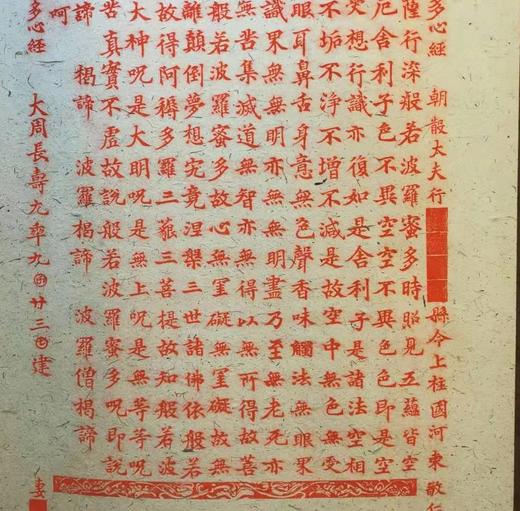 多心經　朝散大夫行　縣令上柱國河東敬仁
薩行深般若波羅蜜多時照見五蘊皆空
厄舍利子色不異空空不異色色即是空
受想行識亦復如是舍利子是諸法空相
不垢不淨不增不減是故空中無色無受
眼耳鼻舌身意無色聲香味觸法無眼界
識界無無明亦無無明盡乃至無老死亦
無苦集滅道無智亦無得以無所得故菩
般若波羅蜜多故心無罣礙無罣礙故無
離顛倒夢想究竟涅槃三世諸佛依般若
故得阿耨多羅三藐三菩提故知般若波
大神呪是大明呪是無上呪是無等等呪
苦真實不虛故說般若波羅蜜多呪即說
諦　揭諦　波羅揭諦　波羅僧揭諦
呵
多心經　大周長壽九年九囝廿三𡆠建　妻